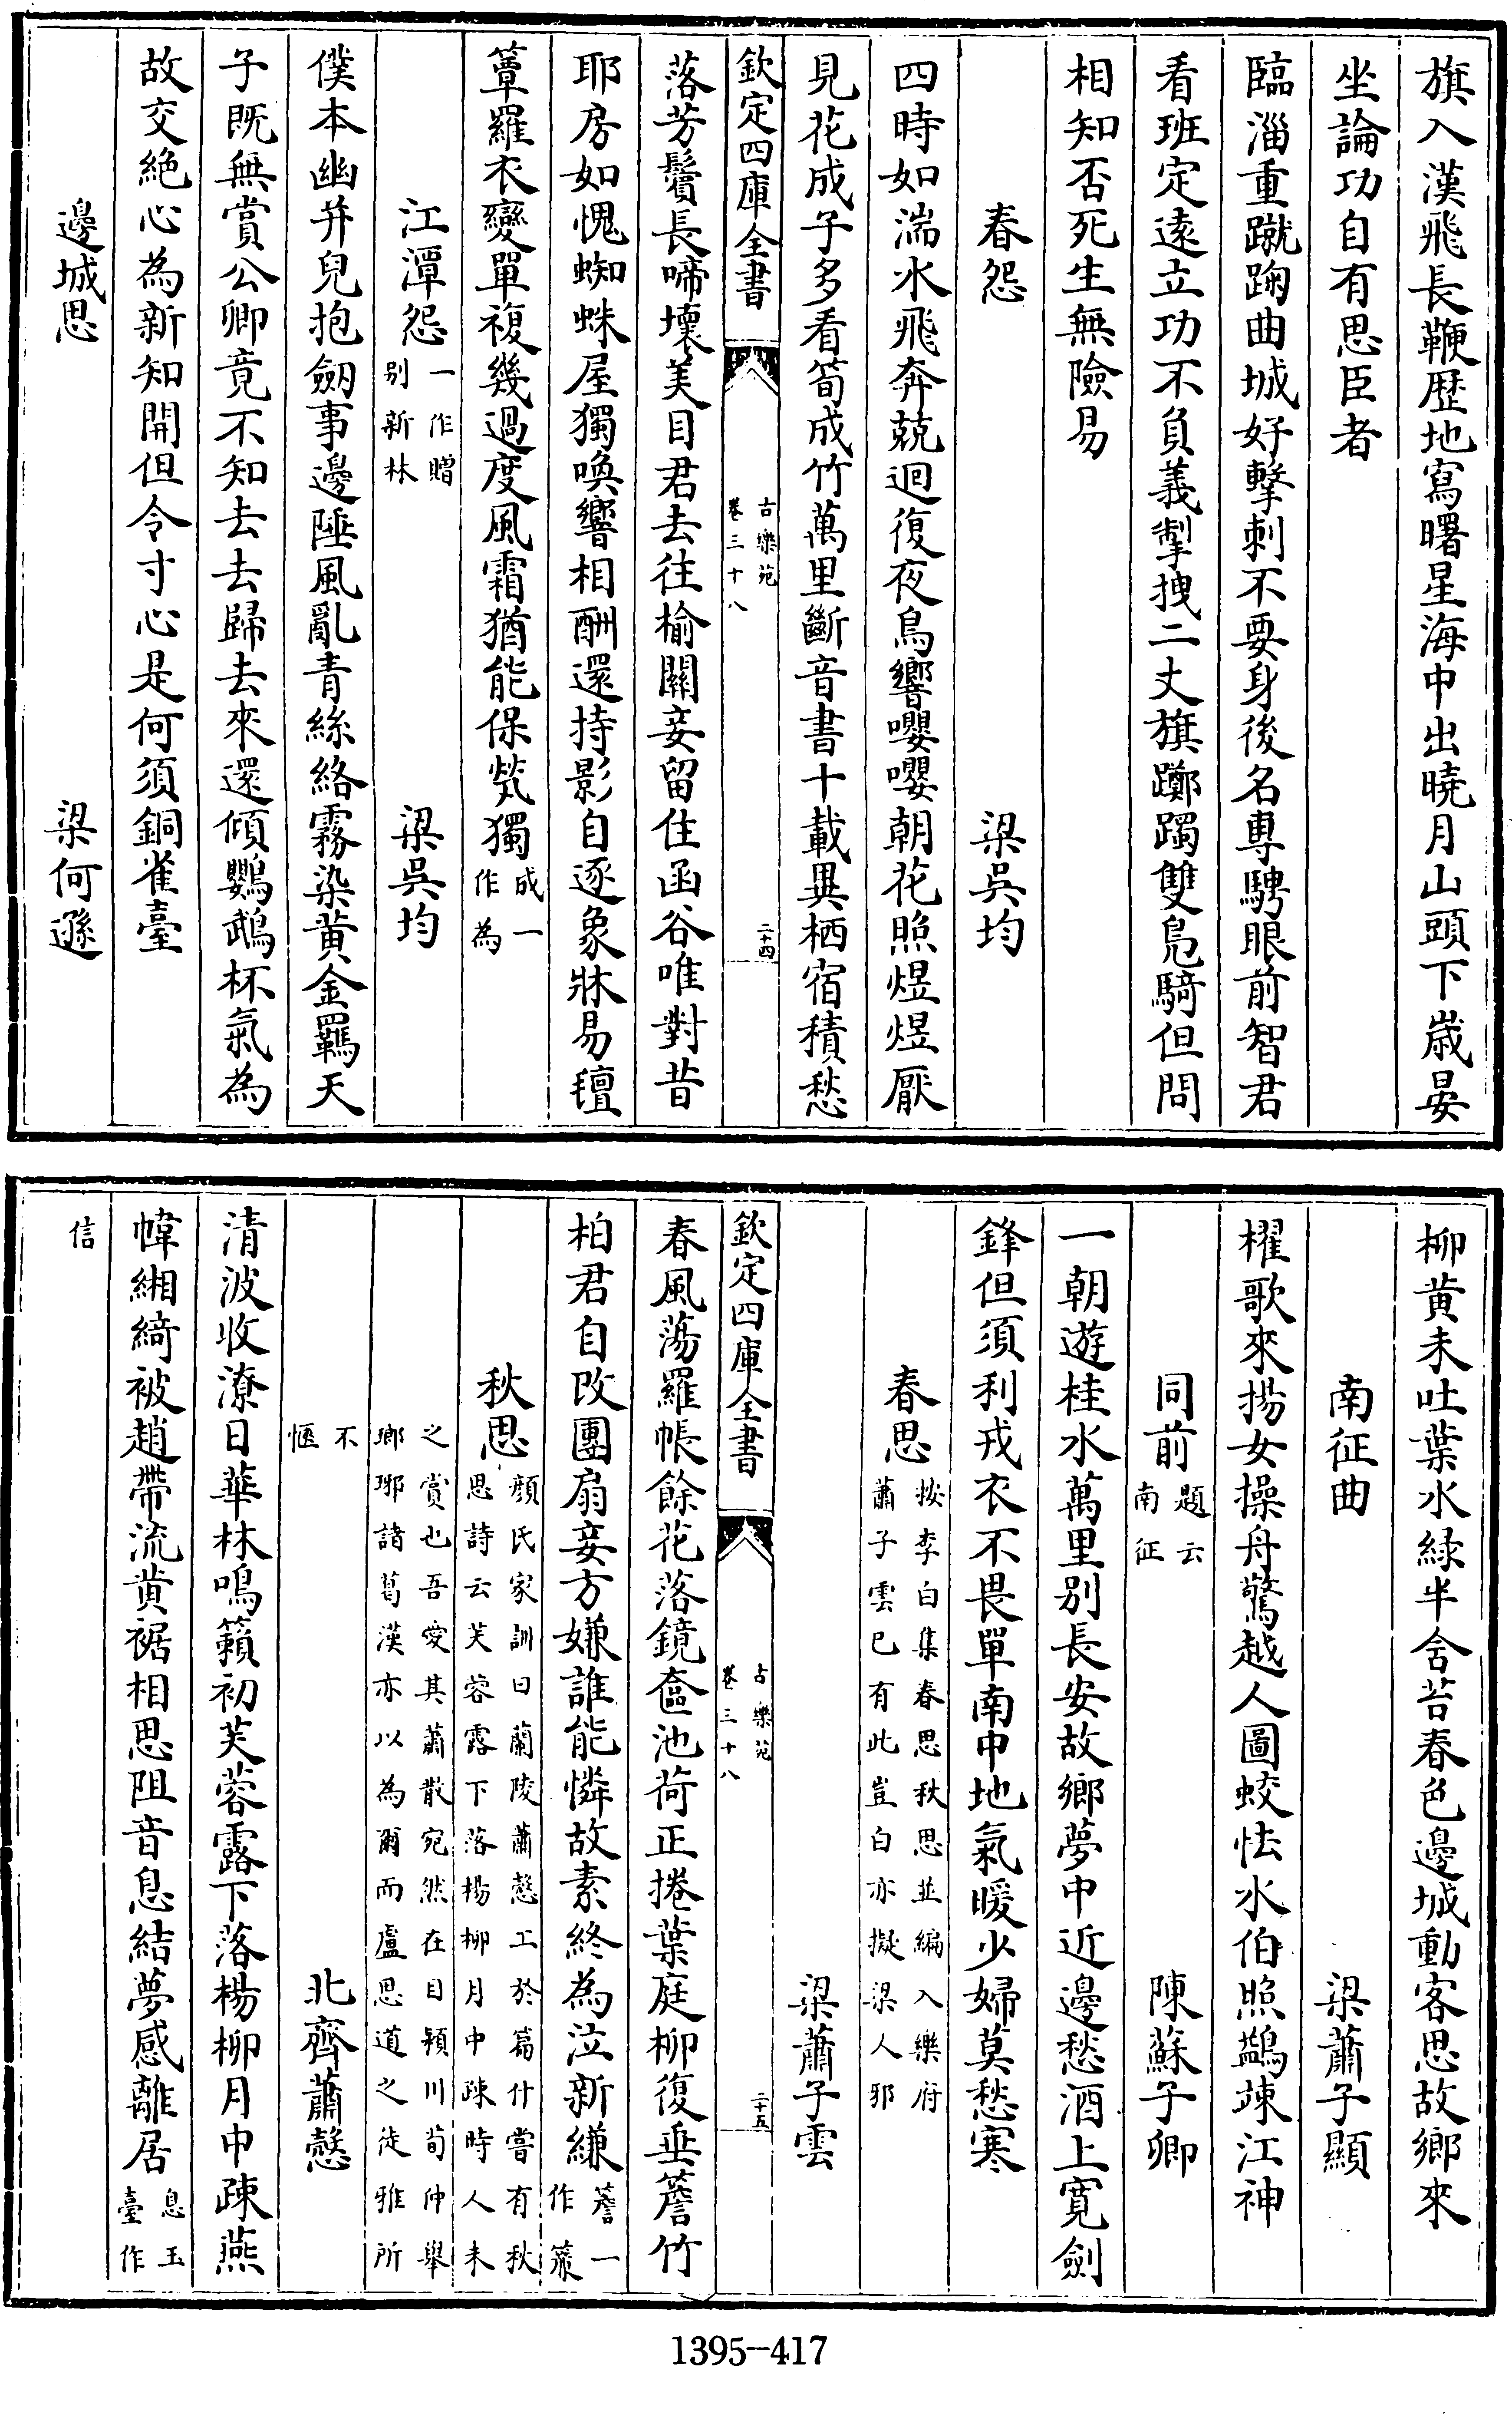 旗入漢飛長鞭歴地寫曙星海中出曉月山頭下歳晏
坐論功自有思臣者
臨淄重蹴踘曲城好擊刺不要身後名專騁眼前智君
看班定遠立功不負義掣拽二丈旗躑躅雙鳧騎但問
相知否死生無險易
春怨 梁吳均
四時如湍水飛奔兢迴復夜鳥響嚶嚶朝花照煜煜厭
見花成子多看筍成竹萬里斷音書十載異栖宿積愁
欽定四庫全書 古樂苑 卷三十八 二十四
落芳鬢長啼壞美目君去往榆關妾留住函谷唯對昔
耶房如愧蜘蛛屋獨喚響相酬還持影自逐象牀易氊
簟羅衣變單複幾過度風霜猶能保煢獨成一作為
江潭怨一作贈别新林 梁吳均
僕本幽并兒抱劒事邊陲風亂青絲絡霧染黄金羈天
子既無賞公卿竟不知去去歸去來還傾鸚鵡杯氣為
故交絶心為新知開但令寸心是何須銅雀臺
邊城思 梁何遜
柳黄未吐葉水緑半含苔春色邊城動客思故鄉來
南征曲 梁蕭子顯
櫂歌來揚女操舟驚越人圖蛟怯水伯照鷁竦江神
同前題云南征 陳蘇子卿
一朝遊桂水萬里别長安故鄉夢中近邊愁酒上寛劍
鋒但須利戎衣不畏單南中地氣暖少婦莫愁寒
春思按李白集春思秋思並編入樂府蕭子雲已有此豈白亦擬梁人邪
梁蕭子雲
欽定四庫全書 古樂苑 卷三十八 二十五
春風蕩羅帳餘花落鏡奩池荷正捲葉庭柳復垂簷竹
柏君自改團扇妾方嫌誰能憐故素終為泣新縑簷一作簾
秋思顔氏家訓曰蘭陵蕭慤工於篇什嘗有秋思詩云芙蓉露下落楊柳月中疎時人未
之賞也吾愛其蕭散宛然在目潁川荀仲舉瑯琊諸葛漢亦以為爾而盧思道之徒雅所
不愜 北齊蕭慤
清波收潦日華林鳴籟初芙蓉露下落楊柳月中疎燕
幃緗綺被趙帶流黄裾相思阻音息結夢感離居息玉臺作
信
1395-417